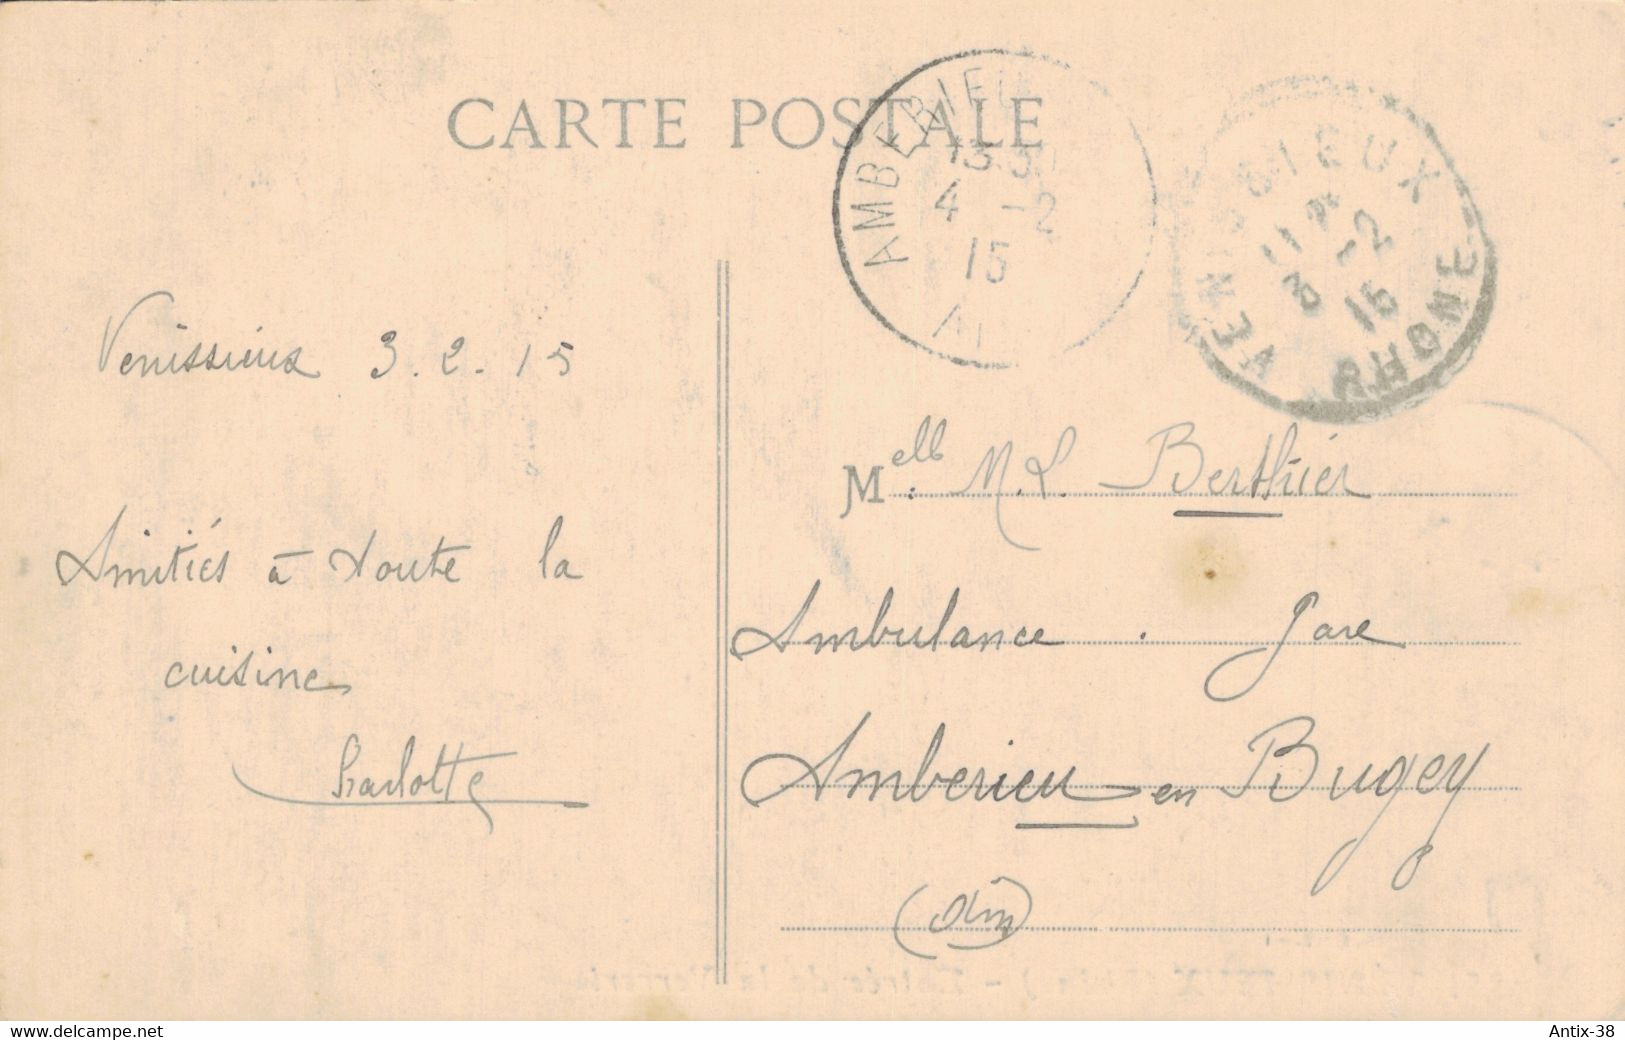 CARTE POSTALE
AMBERIEU
13 30
4 -2
15
VENISSIEUX
11
3 -2
15
RHONE
Venissieux 3.2.15
Amitiés à toute la
cuisine
Charlotte
Melle M.L. Berthier
Ambulance . Gare
Amberieu en Bugey
(Ain)
www.delcampe.net
Antix-38